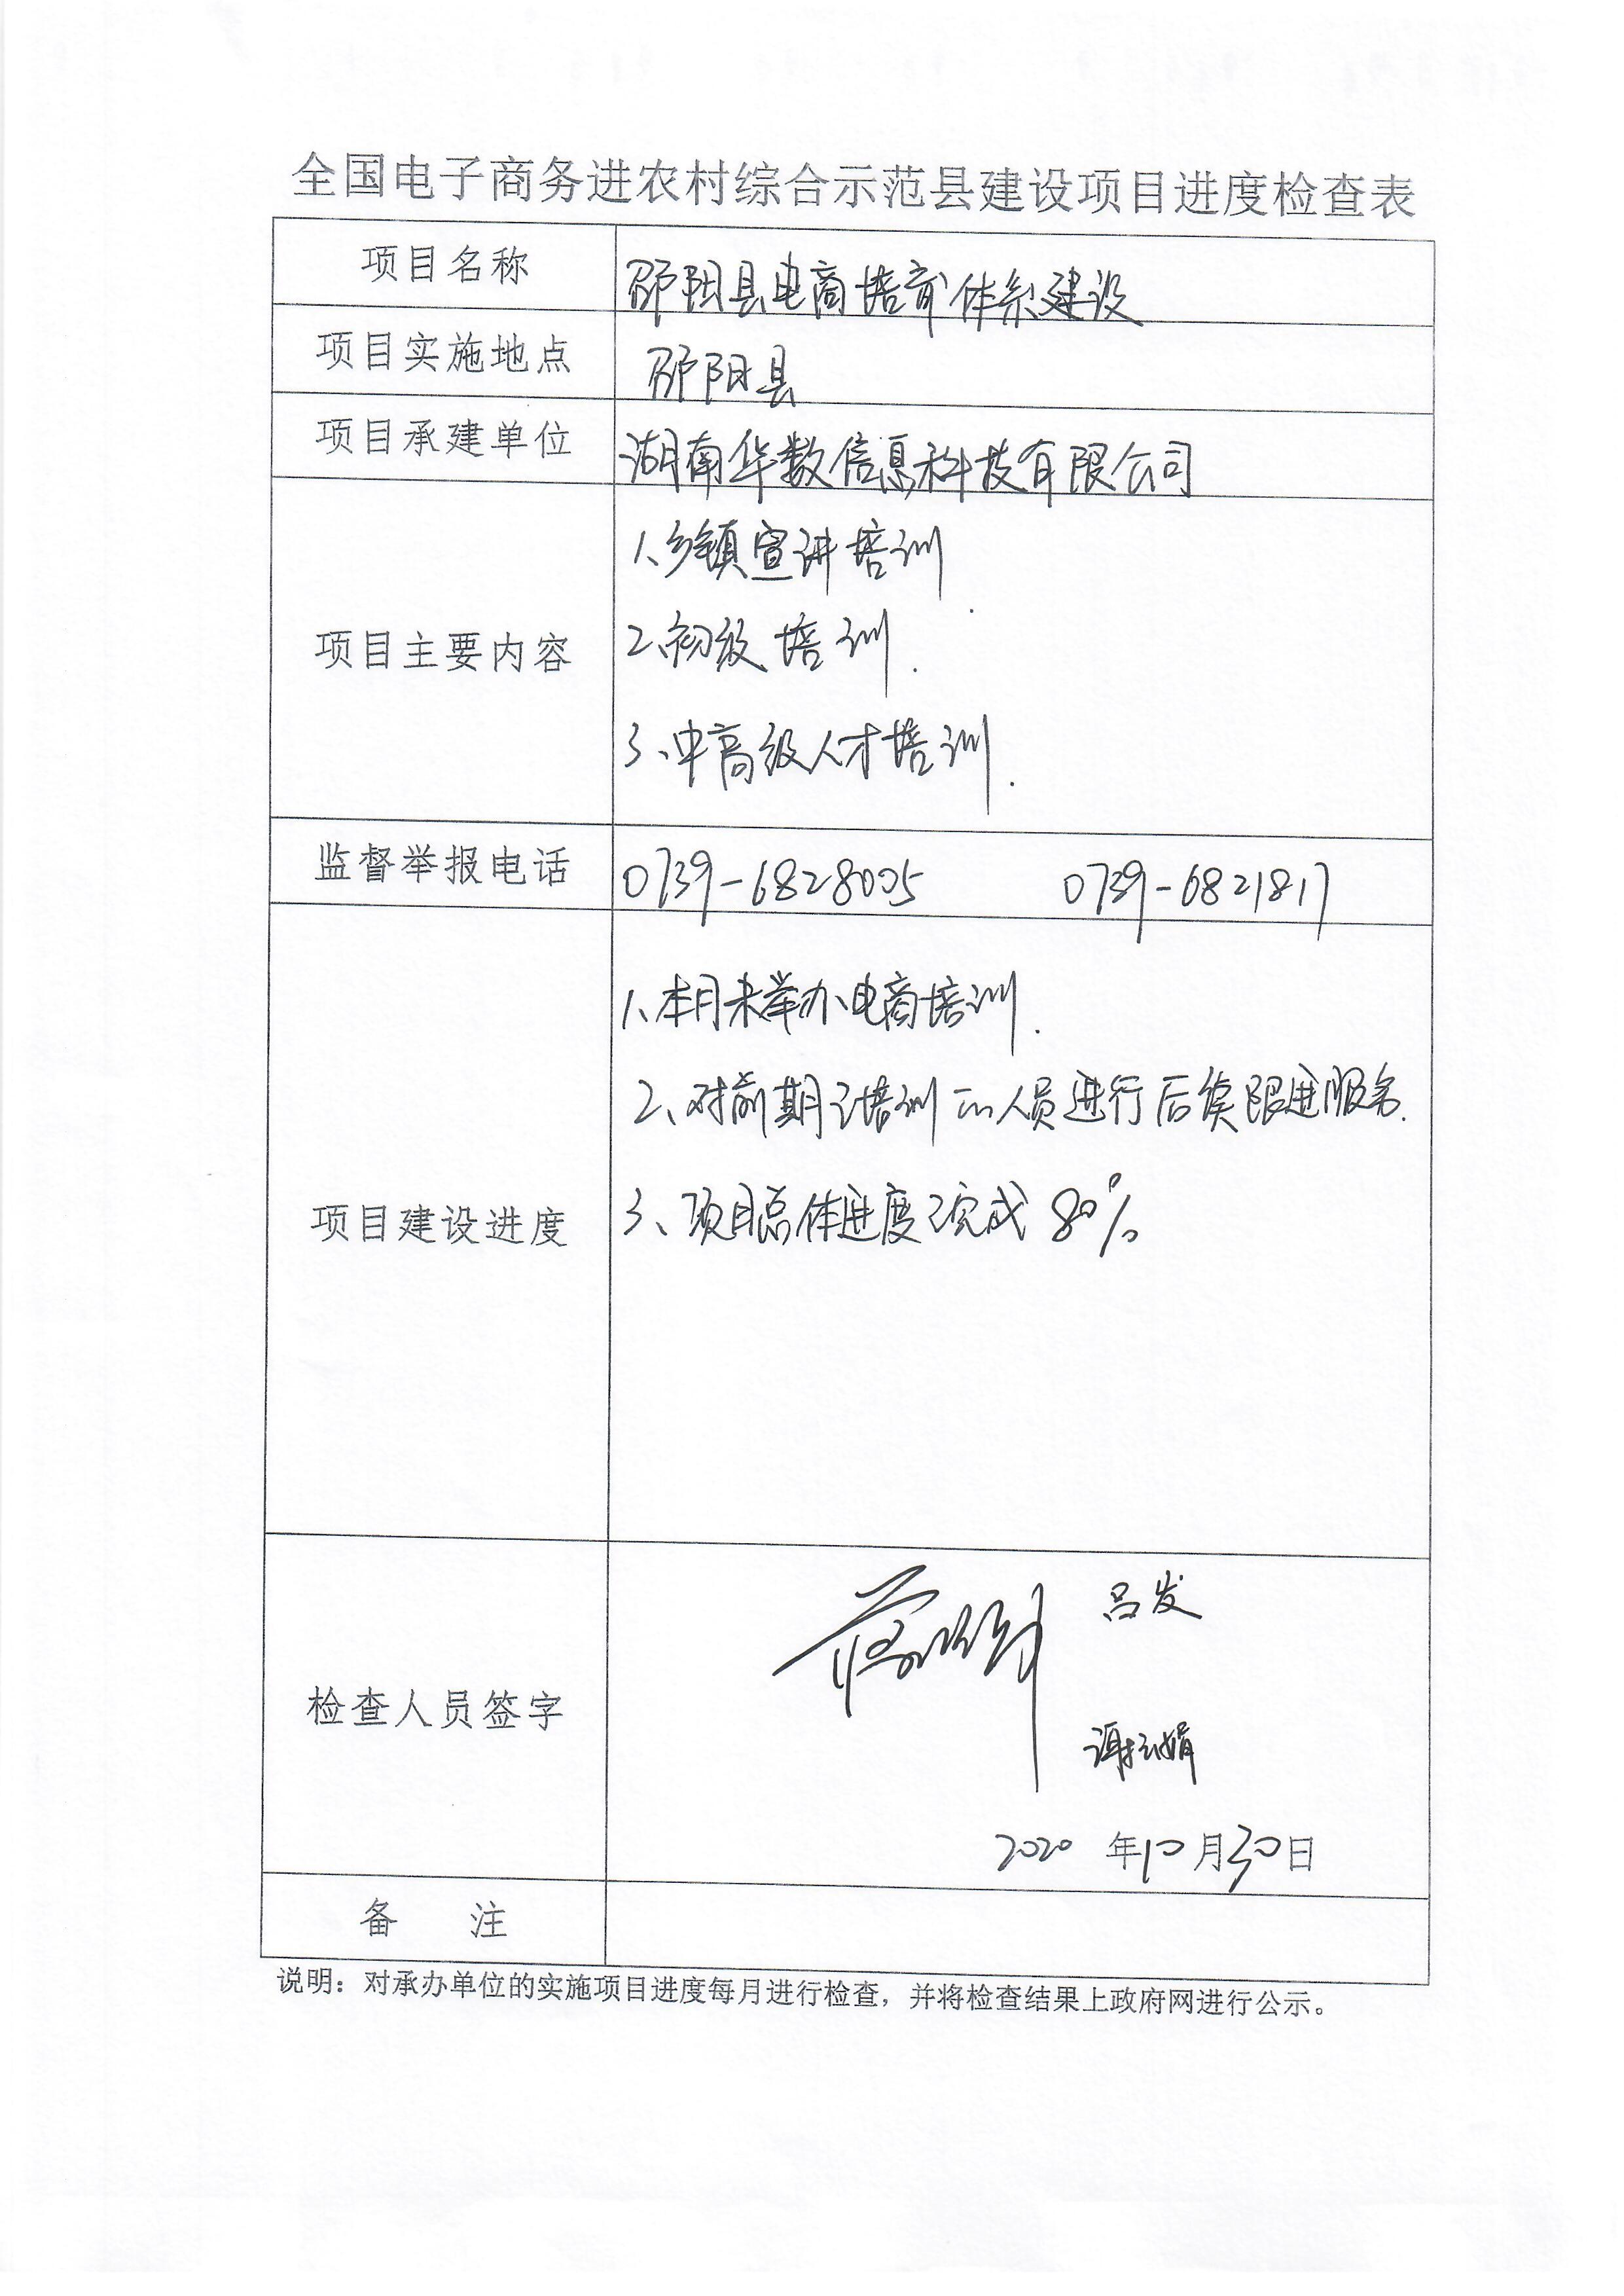 全国电子商务进农村综合示范县建设项目进度检查表
项目名称 邵阳县电商培育体系建设
项目实施地点 邵阳县
项目承建单位 湖南华数信息科技有限公司
项目主要内容
1、乡镇宣讲培训
2、初级培训.
3、中高级人才培训.
监督举报电话 0739-6828005 0739-6821817
项目建设进度
1、本月未举办电商培训.
2、对前期已培训的人员进行后续跟进服务.
3、项目总体进度已完成80%
检查人员签字
吕发
2020 年10月30日
备 注
说明：对承办单位的实施项目进度每月进行检查，并将检查结果上政府网进行公示。